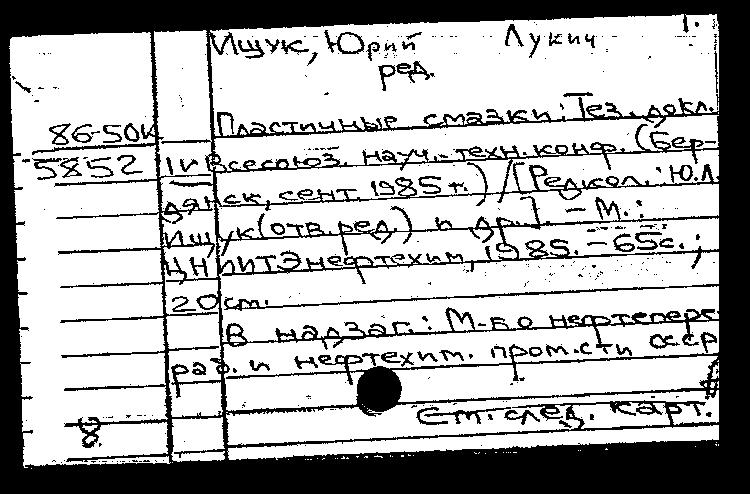 1.
Ищук, Юрий Лукич
ред.
86-50к
5852
Пластичные смазки: Тез. докл.
IV Всесоюз. науч.-техн. конф. (Бер-
дянск, сент. 1985 г.) / [Редкол.: Ю.Л.
Ищук (отв. ред.) и др.]. - М.:
ЦНИИТЭнефтехим, 1985. - 65 с.;
20 см.
В надзаг.: М-во нефтепере-
раб. и нефтехим. пром.сти СССР
См. след. карт.
8